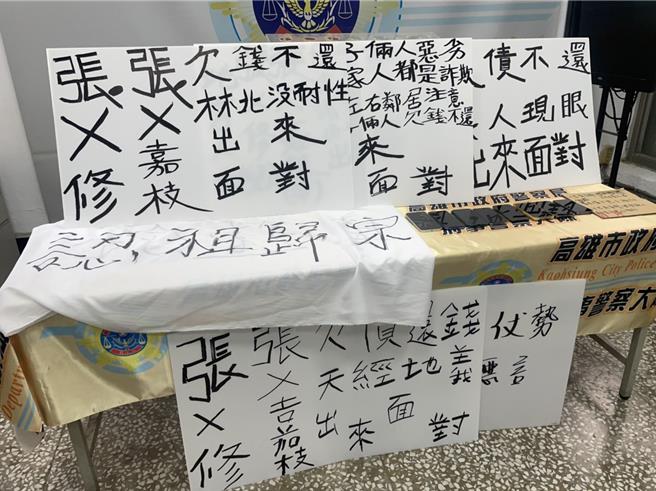 張X修
張X嘉枝
欠錢不還
林北沒耐性
出來
面對
子倆人惡劣
家人都是詐欺
左右鄰居注意
倆人欠錢不還
來
面對
債不還
人現眼
出來面對
認祖歸宗
高雄市政府警察局
刑事警察大隊
高雄市政府
Kaohsiung City Police
事警察大
張X修
張X嘉枝
欠債還錢
天經地義
出來面對
仗勢